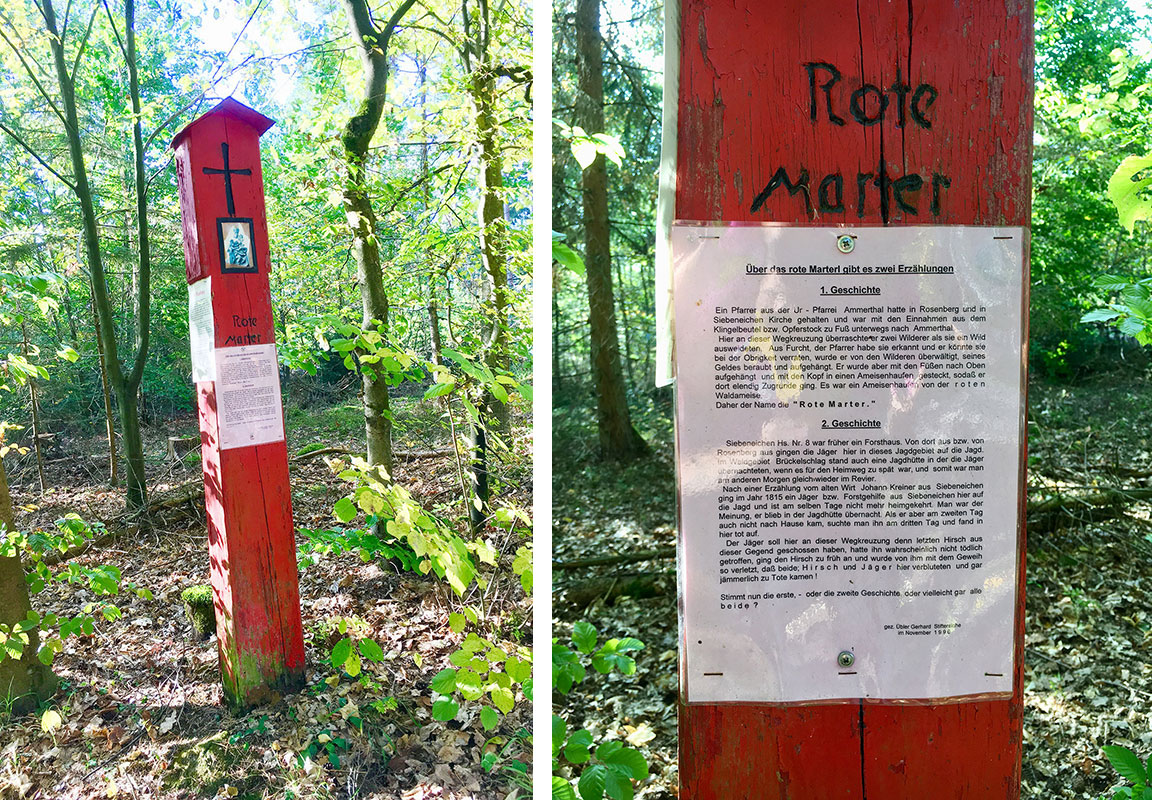 Rote
Marter
Rote
Marter
Über das rote Marterl gibt es zwei Erzählungen
1. Geschichte
Ein Pfarrer aus der Jr - Pfarrei Ammerthal hatte in Rosenberg und in
Siebeneichen Kirche gehalten und war mit den Einnahmen aus dem
Klingelbeutel bzw. Opferstock zu Fuß unterwegs nach Ammerthal.
Hier an dieser Wegkreuzung überraschte er zwei Wilderer als sie ein Wild
ausweideten. Aus Furcht, der Pfarrer habe sie erkannt und er könnte sie
bei der Obrigkeit verraten, wurde er von den Wilderen überwältigt, seines
Geldes beraubt und aufgehängt. Er wurde aber mit den Füßen nach Oben
aufgehängt und mit den Kopf in einen Ameisenhaufen, gesteckt, sodaß er
dort elendig Zugrunde ging. Es war ein Ameisenhaufen von der r o t e n
Waldameise.
Daher der Name die "Rote Marter."
2. Geschichte
Siebeneichen Hs. Nr. 8 war früher ein Forsthaus. Von dort aus bzw. von
Rosenberg aus gingen die Jäger hier in dieses Jagdgebiet auf die Jagd.
Im Waldgebiet Brückelschlag stand auch eine Jagdhütte in der die Jäger
übernachteten, wenn es für den Heimweg zu spät war, und somit war man
am anderen Morgen gleich wieder im Revier.
Nach einer Erzählung vom alten Wirt Johann Kreiner aus Siebeneichen
ging im Jahr 1815 ein Jäger bzw. Forstgehilfe aus Siebeneichen hier auf
die Jagd und ist am selben Tage nicht mehr heimgekehrt. Man war der
Meinung, er blieb in der Jagdhütte übernacht. Als er aber am zweiten Tag
auch nicht nach Hause kam, suchte man ihn am dritten Tag und fand in
hier tot auf.
Der Jäger soll hier an dieser Wegkreuzung denn letzten Hirsch aus
dieser Gegend geschossen haben, hatte ihn wahrscheinlich nicht tödlich
getroffen, ging den Hirsch zu früh an und wurde von ihm mit dem Geweih
so verletzt, daß beide; H i r s c h und J ä g e r hier verbluteten und gar
jämmerlich zu Tote kamen !
Stimmt nun die erste, - oder die zweite Geschichte, oder vielleicht gar alle
b e i d e ?
gez. Übler Gerhard
im November 1 9 9 6